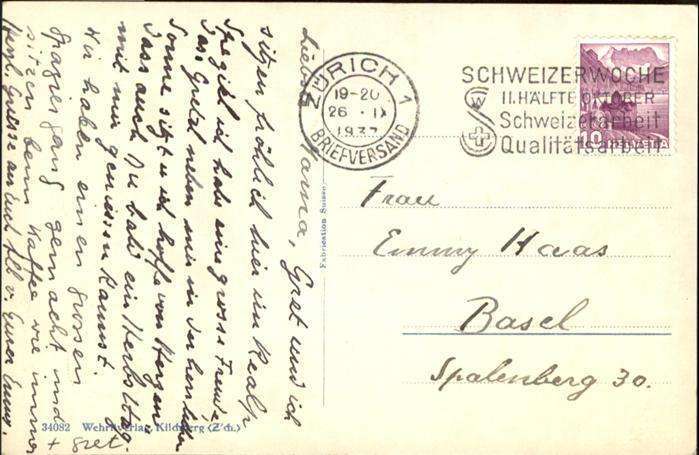 Liebe Mama, Gret und ich
sitzen fröhlich hier im Realp
Speziell ich habe eine grosse Freude,
dass Gretel neben mir in der herrlichen
Sonne sitzt u ich hoffe von Herzen
dass auch Du bald ein Herbsttag
mit mir geniessen kannst.
Wir haben einen grossen
Spaziergang gemacht und
sitzen beim Kaffee wie immer
Herzl. Grüsse an Euch all v. Eurer Emmy.
+ Gret.
ZÜRICH 1
19-20
26. IX
1937
BRIEFVERSAND
SCHWEIZERWOCHE
II. HÄLFTE OKTOBER
Schweizerarbeit
Qualitätsarbeit
W
10 HELVETIA
Frau
Emmy Haas
Basel
Spalenberg 30.
Fabrication Suisse
34082 Wehrliverlag, Kilchberg (Z'ch.)